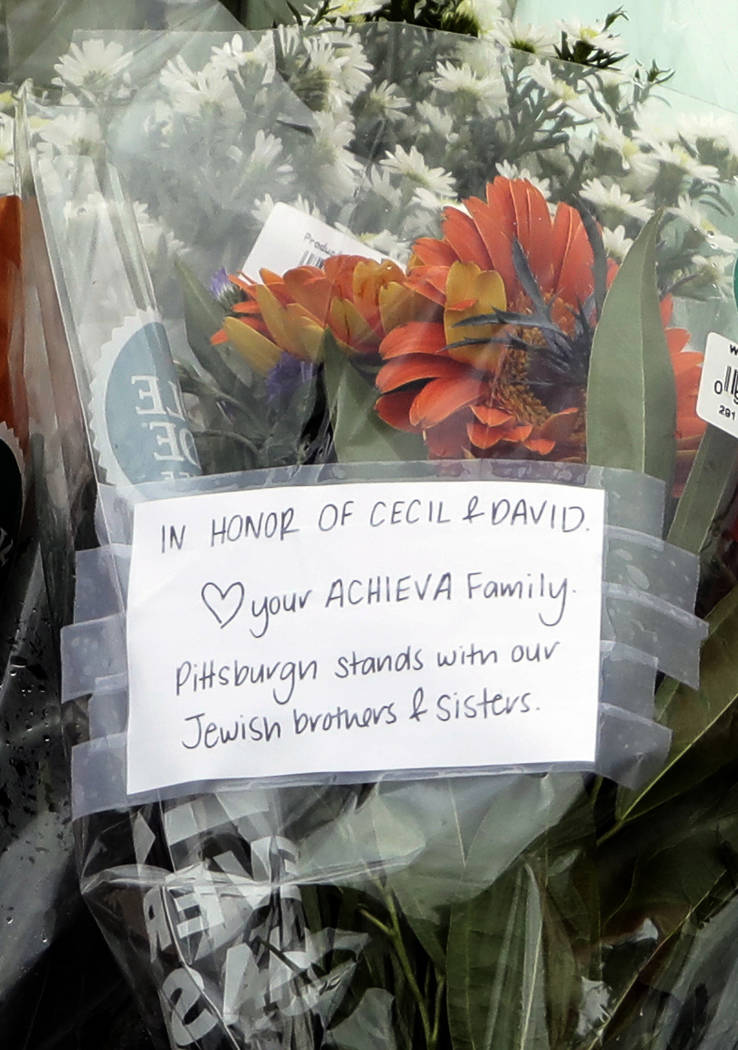 IN HONOR OF CECIL & DAVID.
♡ your ACHIEVA Family.
Pittsburgh stands with our
Jewish brothers & sisters.
Produ
291